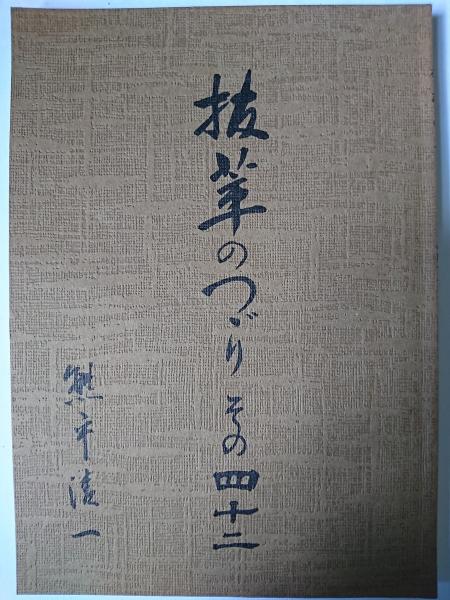 抜萃のつゞり その四十二
熊平清一